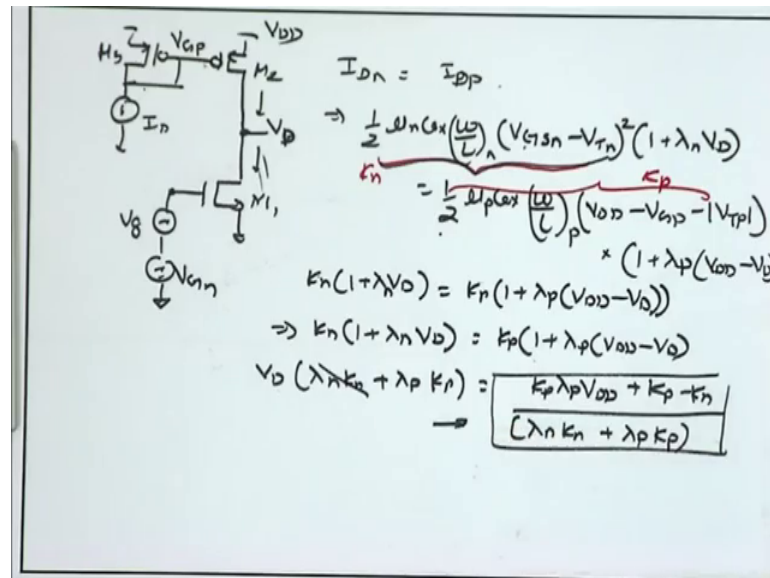 VDD
M3
VGp
M2
In
VD
M1
Vg
VGn
IDn = IDp
⇒ 1/2 μn Cox (W/L)n (VGSn − VTn)² (1 + λn VD)
Kn
Kp
= 1/2 μp Cox (W/L)p (VDD − VGp − |VTp|)
× (1 + λp (VDD − VD
Kn (1 + λn VD) = Kp (1 + λp (VDD − VD))
⇒ Kn (1 + λn VD) = Kp (1 + λp (VDD − VD)
VD (λn Kn + λp Kp) = Kp λp VDD + Kp − Kn
→ (λn Kn + λp Kp)